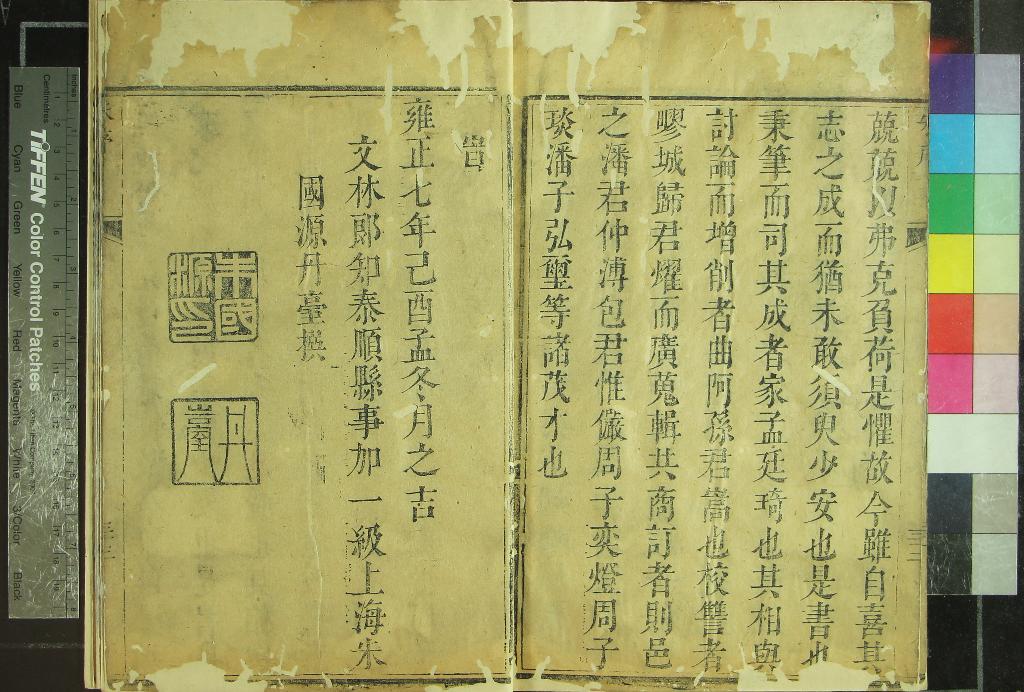 兢兢以弗克負荷是懼故今雖自喜其
志之成而猶未敢須臾少安也是書也
秉筆而司其成者家孟廷琦也其相與
討論而增削者曲阿孫君嵩也校讐者
疁城歸君燿而廣蒐輯共商訂者則邑
之潘君仲溥包君惟儼周子奕燈周子
琰潘子弘璽等諸茂才也
旹
雍正七年己酉孟冬月之吉
文林郎知泰順縣事加一級上海朱
國源丹臺撰
朱國源印
丹臺
TIFFEN Color Control Patches
Inches
Centimetres
Blue Cyan Green Yellow Red Magenta White 3/Color Black